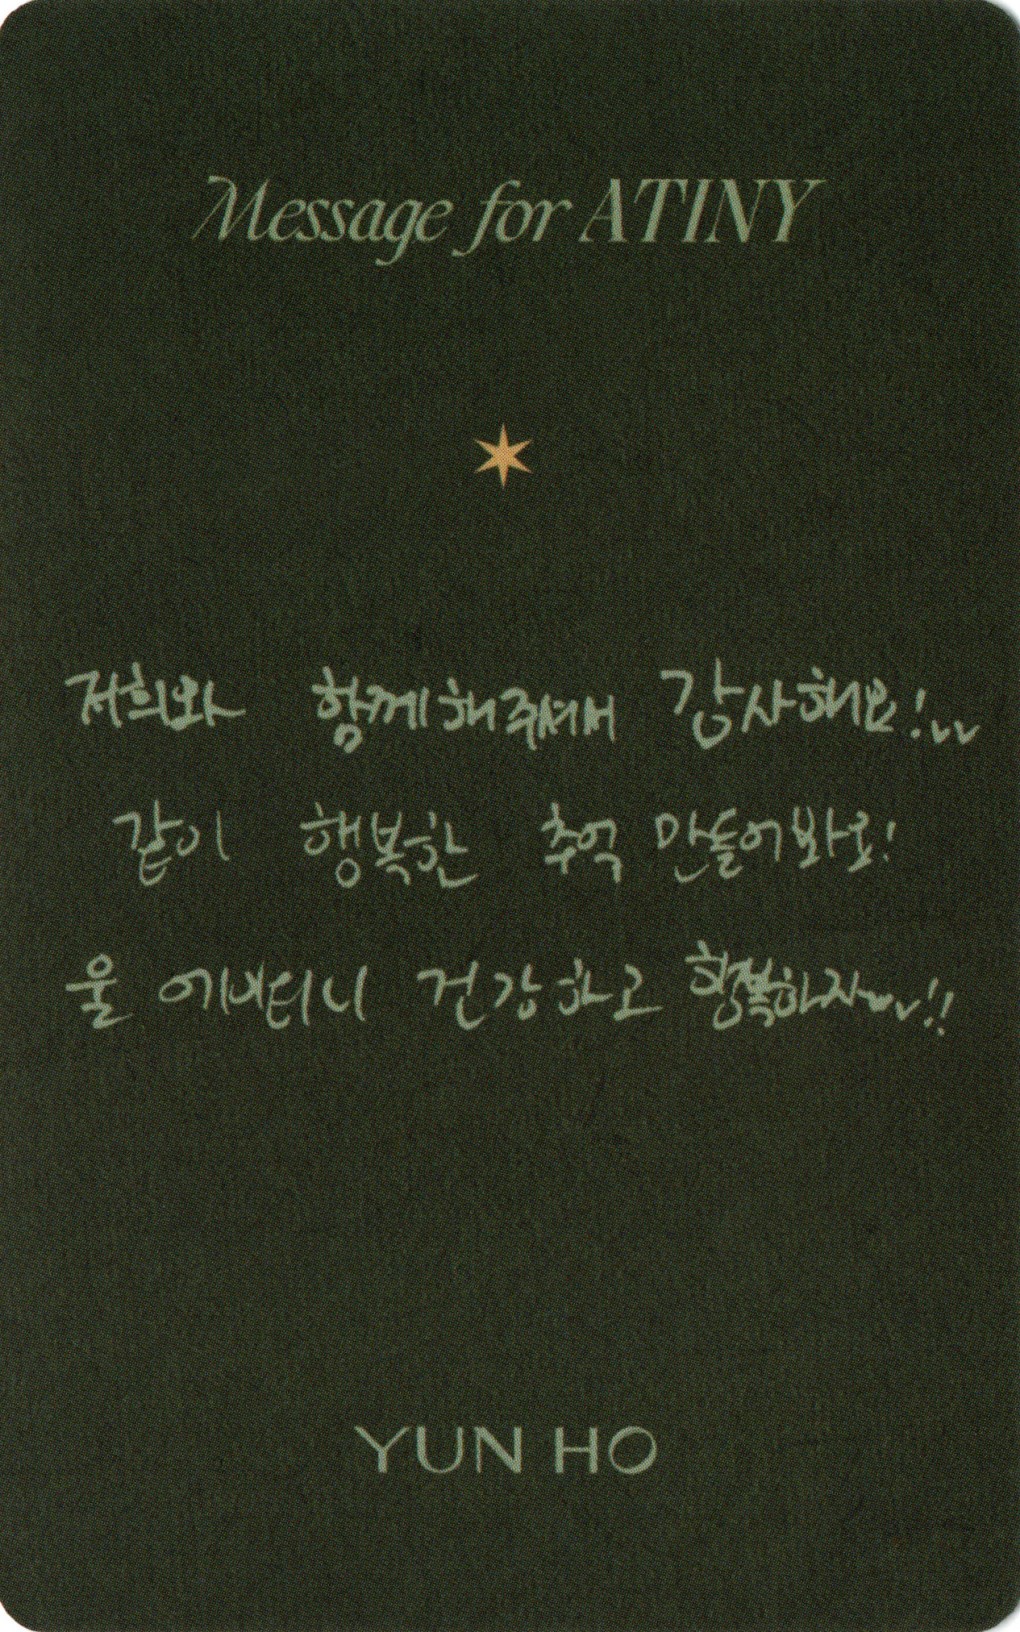 Message for ATINY
저희와 함께해주셔서 감사해요!
같이 행복한 추억 만들어봐요!
울 에이티니 건강하고 행복하자!!
YUN HO